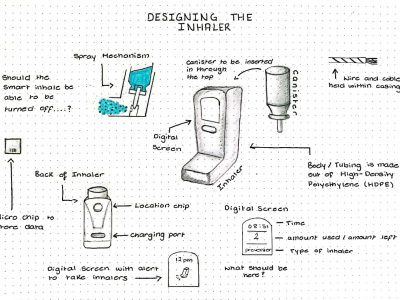 DESIGNING THE
INHALER
Spray Mechanism
Canister to be inserted
in through
the top
Canister
Wire and cable
held within casing
Should the
Smart inhale be
able to be
turned off....?
Digital
Screen
Inhaler
Body / Tubing is made
out of High-Density
Polyethylene (HDPE)
Back of Inhaler
Location chip
Charging port
icro chip to
tore data
Digital Screen
08:51
Time
2
amount used / amount left
preventer
Type of inhaler
What should be
here?
Digital Screen with alert
to take inhalers
12pm